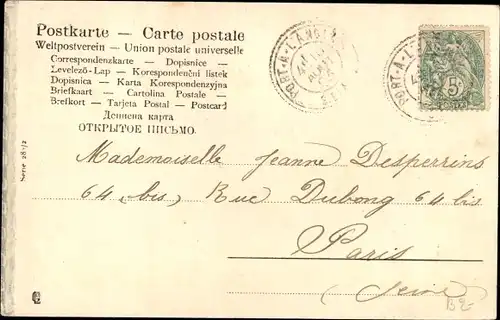 Postkarte — Carte postale
Weltpostverein — Union postale universelle
Correspondenzkarte — Dopisnice —
Levelező-Lap — Korespondenční listek
Dopisnica — Karta Korespondenzyjna
Briefkaart — Cartolina Postale —
Brefkort — Tarjeta Postal — Postcard
Дописна карта
ОТКРЫТОЕ ПИСЬМО.
PORT-A-L
PORT-A-L
5
Mademoiselle Jeanne Desperrins
64 (bis) Rue Dubong 64 bis
Paris
(Seine)
B2-
Serie 28/2